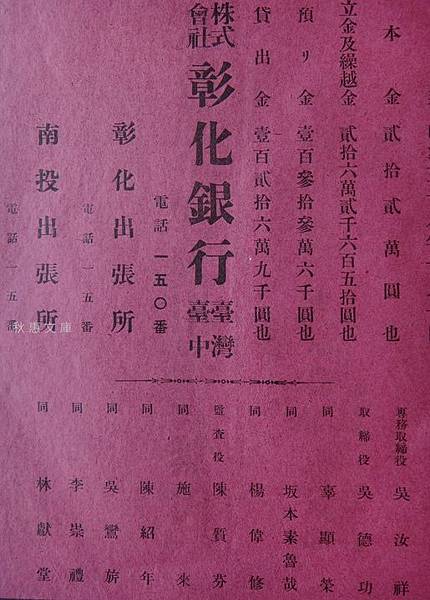 本金貳拾貳萬圓也
立金及繰越金 貳拾六萬貳千六百五拾圓也
預リ金 壹百參拾參萬六千圓也
貸出金 壹百貳拾六萬九千圓也
株式會社 彰化銀行 臺灣臺中
電話一五〇番
彰化出張所
電話一五番
南投出張所
電話一五番
專務取締役 吳汝祥
取締役 吳德功
同 辜顯榮
同 坂本素魯哉
同 楊偉修
監査役 陳質芬
同 施來
同 陳紹年
同 吳鸞旂
同 李崇禮
同 林獻堂
秋惠文庫